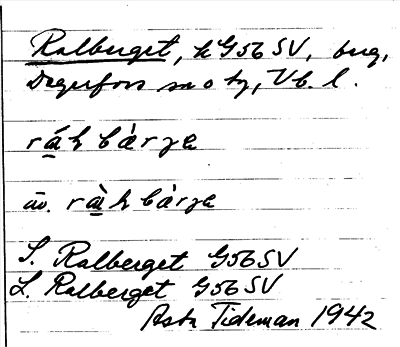 Ralberget, k G56 SV, berg,
Degerfors sn o tg, Vb. l.
ráh bàrga
äv. ràh bàrga
S. Ralberget G56 SV
L. Ralberget G56 SV
Asta Tideman 1942